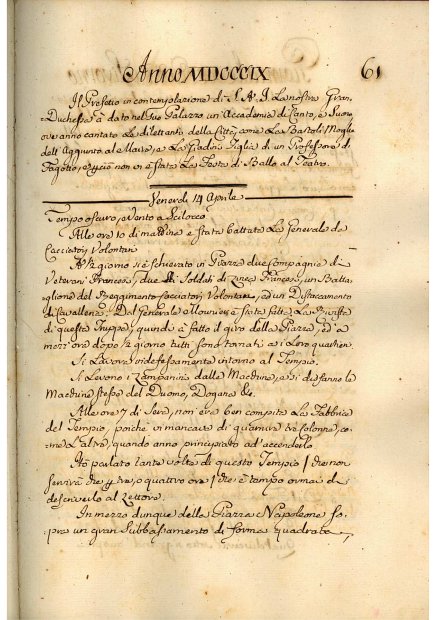 Anno MDCCCIX
61
Il Prefetto in contemplazione di S. A. I. la nostra Gran-
Duchessa à dato nel suo Palazzo un Accademia di Canto, e Suono
ove anno cantato le dilettanti della Città, come la Bartoli Moglie
dell'Aggiunto al Maire, e la Figlia di un Professore di
Fagotto, e perciò non vi è stata la Festa di Ballo al Teatro.
Venerdì 14 Aprile
Tempo oscuro, e Vento a Scilocco
Alle ore 10 di mattina è stata battuta la Generale da
Cacciatori Volontari
A ½ giorno si è schierato in Piazza due Compagnie di
Veterani Francesi, due di Soldati di Linea Francesi, un Batta-
glione del Reggimento Cacciatori Volontari, ed un Distaccamento
di Cavalleria. Dal Generale è stata fatta la Rivista
di queste Truppe, quindi è fatto il giro della Piazza, ed a
mezz'ora dopo ½ giorno tutti sono tornati ai loro quartieri.
Si lavora indefessamente intorno al Tempio.
Si levono i Zampanini dalle Macchine, e si disfanno le
Macchine stesse del Duomo, Dogana &c.
Alle ore 7 di Sera, non era ben compita la Fabbrica
del Tempio, poichè vi mancava di quà tre colonne, co-
me l'altra, quando anno principiato ad accenderlo.
Hò parlato tante volte di questo Tempio / che non
servirà che p tre, o quattro ore / che è tempo ormai di
descriverlo al Lettore.
In mezzo dunque della Piazza Napoleone so-
pra un gran Subbasamento di forma quadrata,